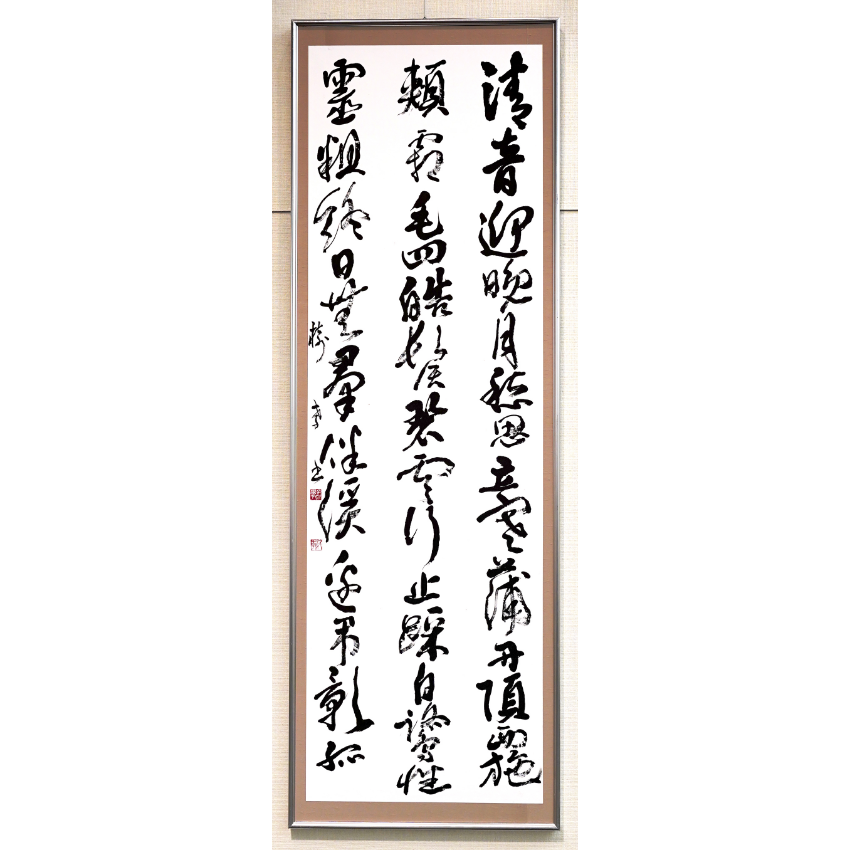 清音迎晚月愁思立寒蒲丹頂西施
頰霜毛四皓鬚碧雲行止躁白鷺性
靈粗終日無羣伴溪邊弔影孤